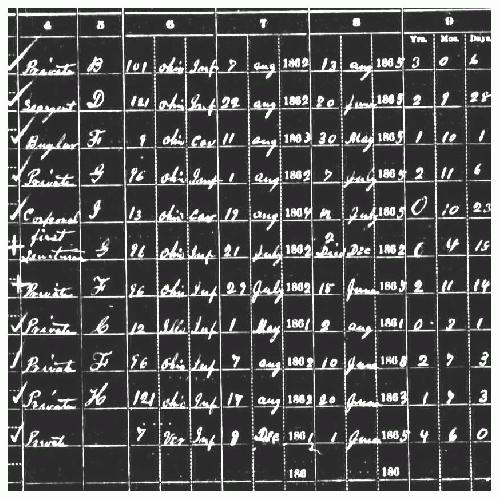 4 5 6 7 8 9
Yrs. Mos. Days
Private B 101 Ohio Inf 7 aug 1862 13 aug 1865 3 0 6
Sergent D 121 Ohio Inf 22 aug 1862 20 June 1865 2 9 28
Buglar F 9 Ohio Cav 11 aug 1863 30 May 1865 1 10 1
Private G 96 Ohio Inf 1 aug 1862 7 July 1865 2 11 6
Corporal I 13 Ohio Cav 19 aug 1864 July 1865 0 10 23
first
G 96 Ohio Inf 21 July 1862 2 Died Dec 1862 0 4 15
Private F 96 Ohio Inf 29 July 1862 18 June 1865 2 11 14
Private C 12 Inf 1 May 1861 2 aug 1861 0 3 1
Private F 96 Ohio Inf 7 aug 1862 10 June 186 2 9 3
Private H 121 Ohio Inf 17 aug 1862 20 June 1863 1 9 3
Privat 7 Ver Inf 8 Dec 1861 1 June 1865 4 6 0
186 186